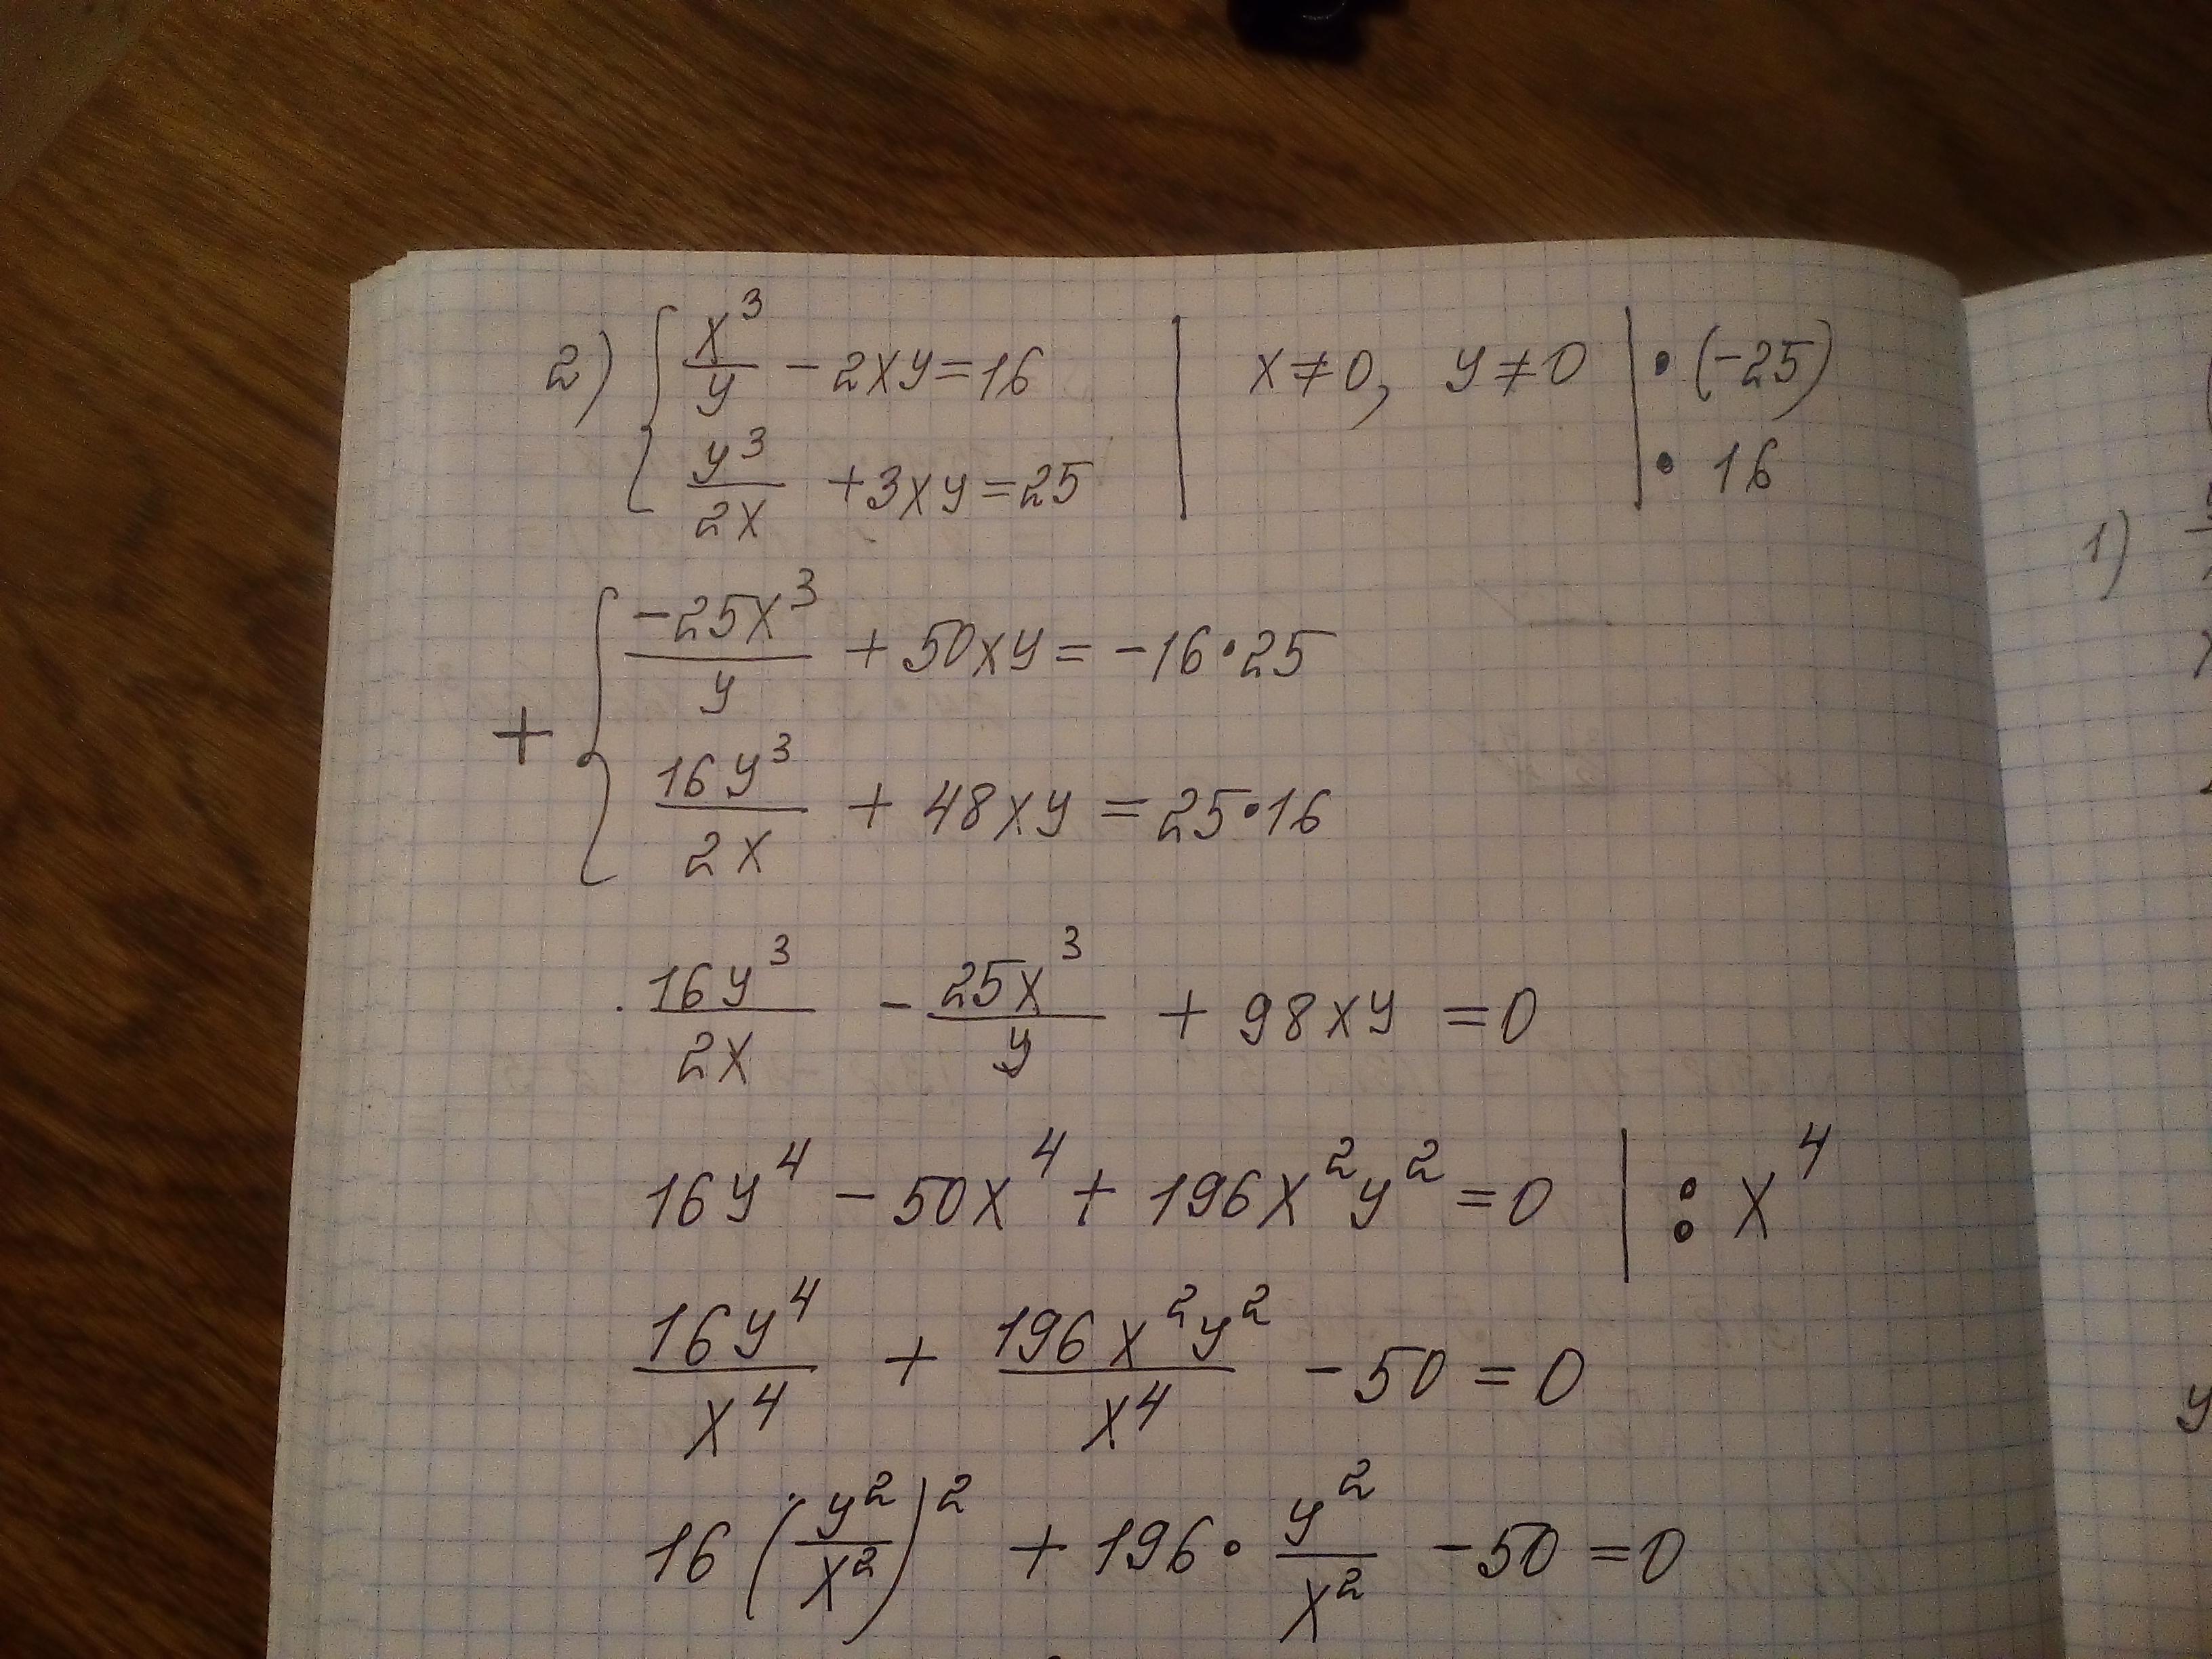 2) { x³/y - 2xy = 16 | x ≠ 0, y ≠ 0 | • (-25)
{ y³/2x + 3xy = 25 | • 16
+ { -25x³/y + 50xy = -16•25
{ 16y³/2x + 48xy = 25•16
16y³/2x - 25x³/y + 98xy = 0
16y⁴ - 50x⁴ + 196x²y² = 0 | : x⁴
16y⁴/x⁴ + 196x²y²/x⁴ - 50 = 0
16(y²/x²)² + 196•y²/x² - 50 = 0
1)
y